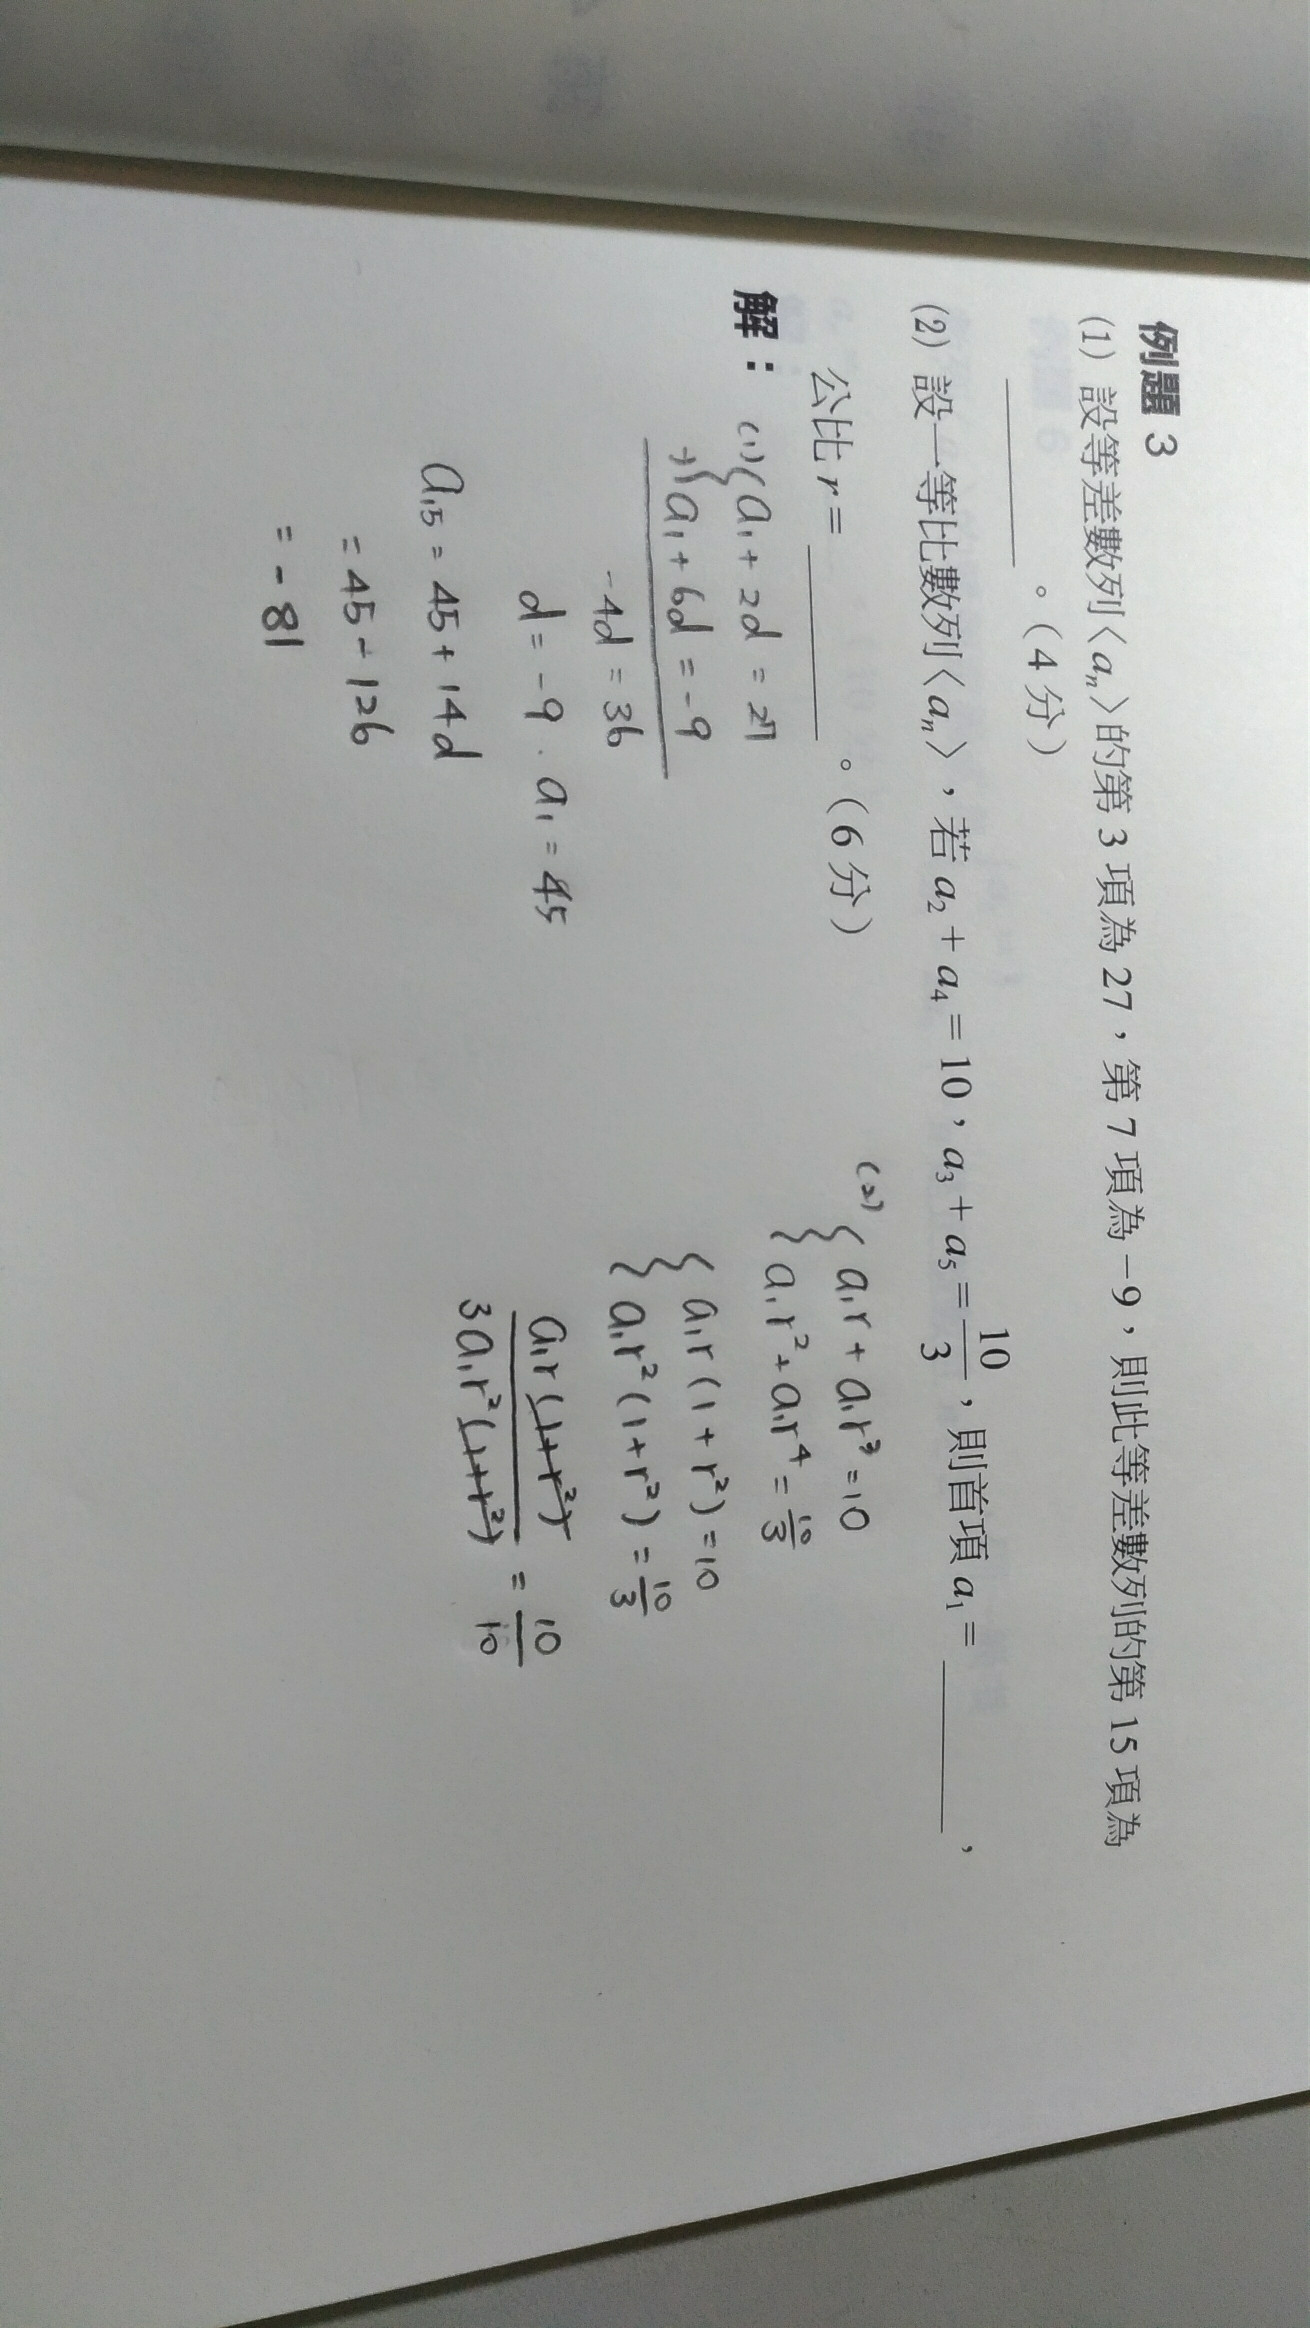 例題 3
(1) 設等差數列〈aₙ〉的第 3 項為 27，第 7 項為 −9，則此等差數列的第 15 項為
＿＿＿＿。（4 分）
(2) 設一等比數列〈aₙ〉，若 a₂ + a₄ = 10，a₃ + a₅ = 10/3，則首項 a₁ = ＿＿＿＿，
公比 r = ＿＿＿＿。（6 分）
解：
(1) { a₁ + 2d = 27
-) a₁ + 6d = -9
-4d = 36
d = -9 . a₁ = 45
a₁₅ = 45 + 14d
= 45 - 126
= - 81
(2) { a₁r + a₁r³ = 10
a₁r² + a₁r⁴ = 10/3
{ a₁r (1 + r²) = 10
a₁r² (1 + r²) = 10/3
a₁r (1+r²) / 3a₁r² (1+r²) = 10/10